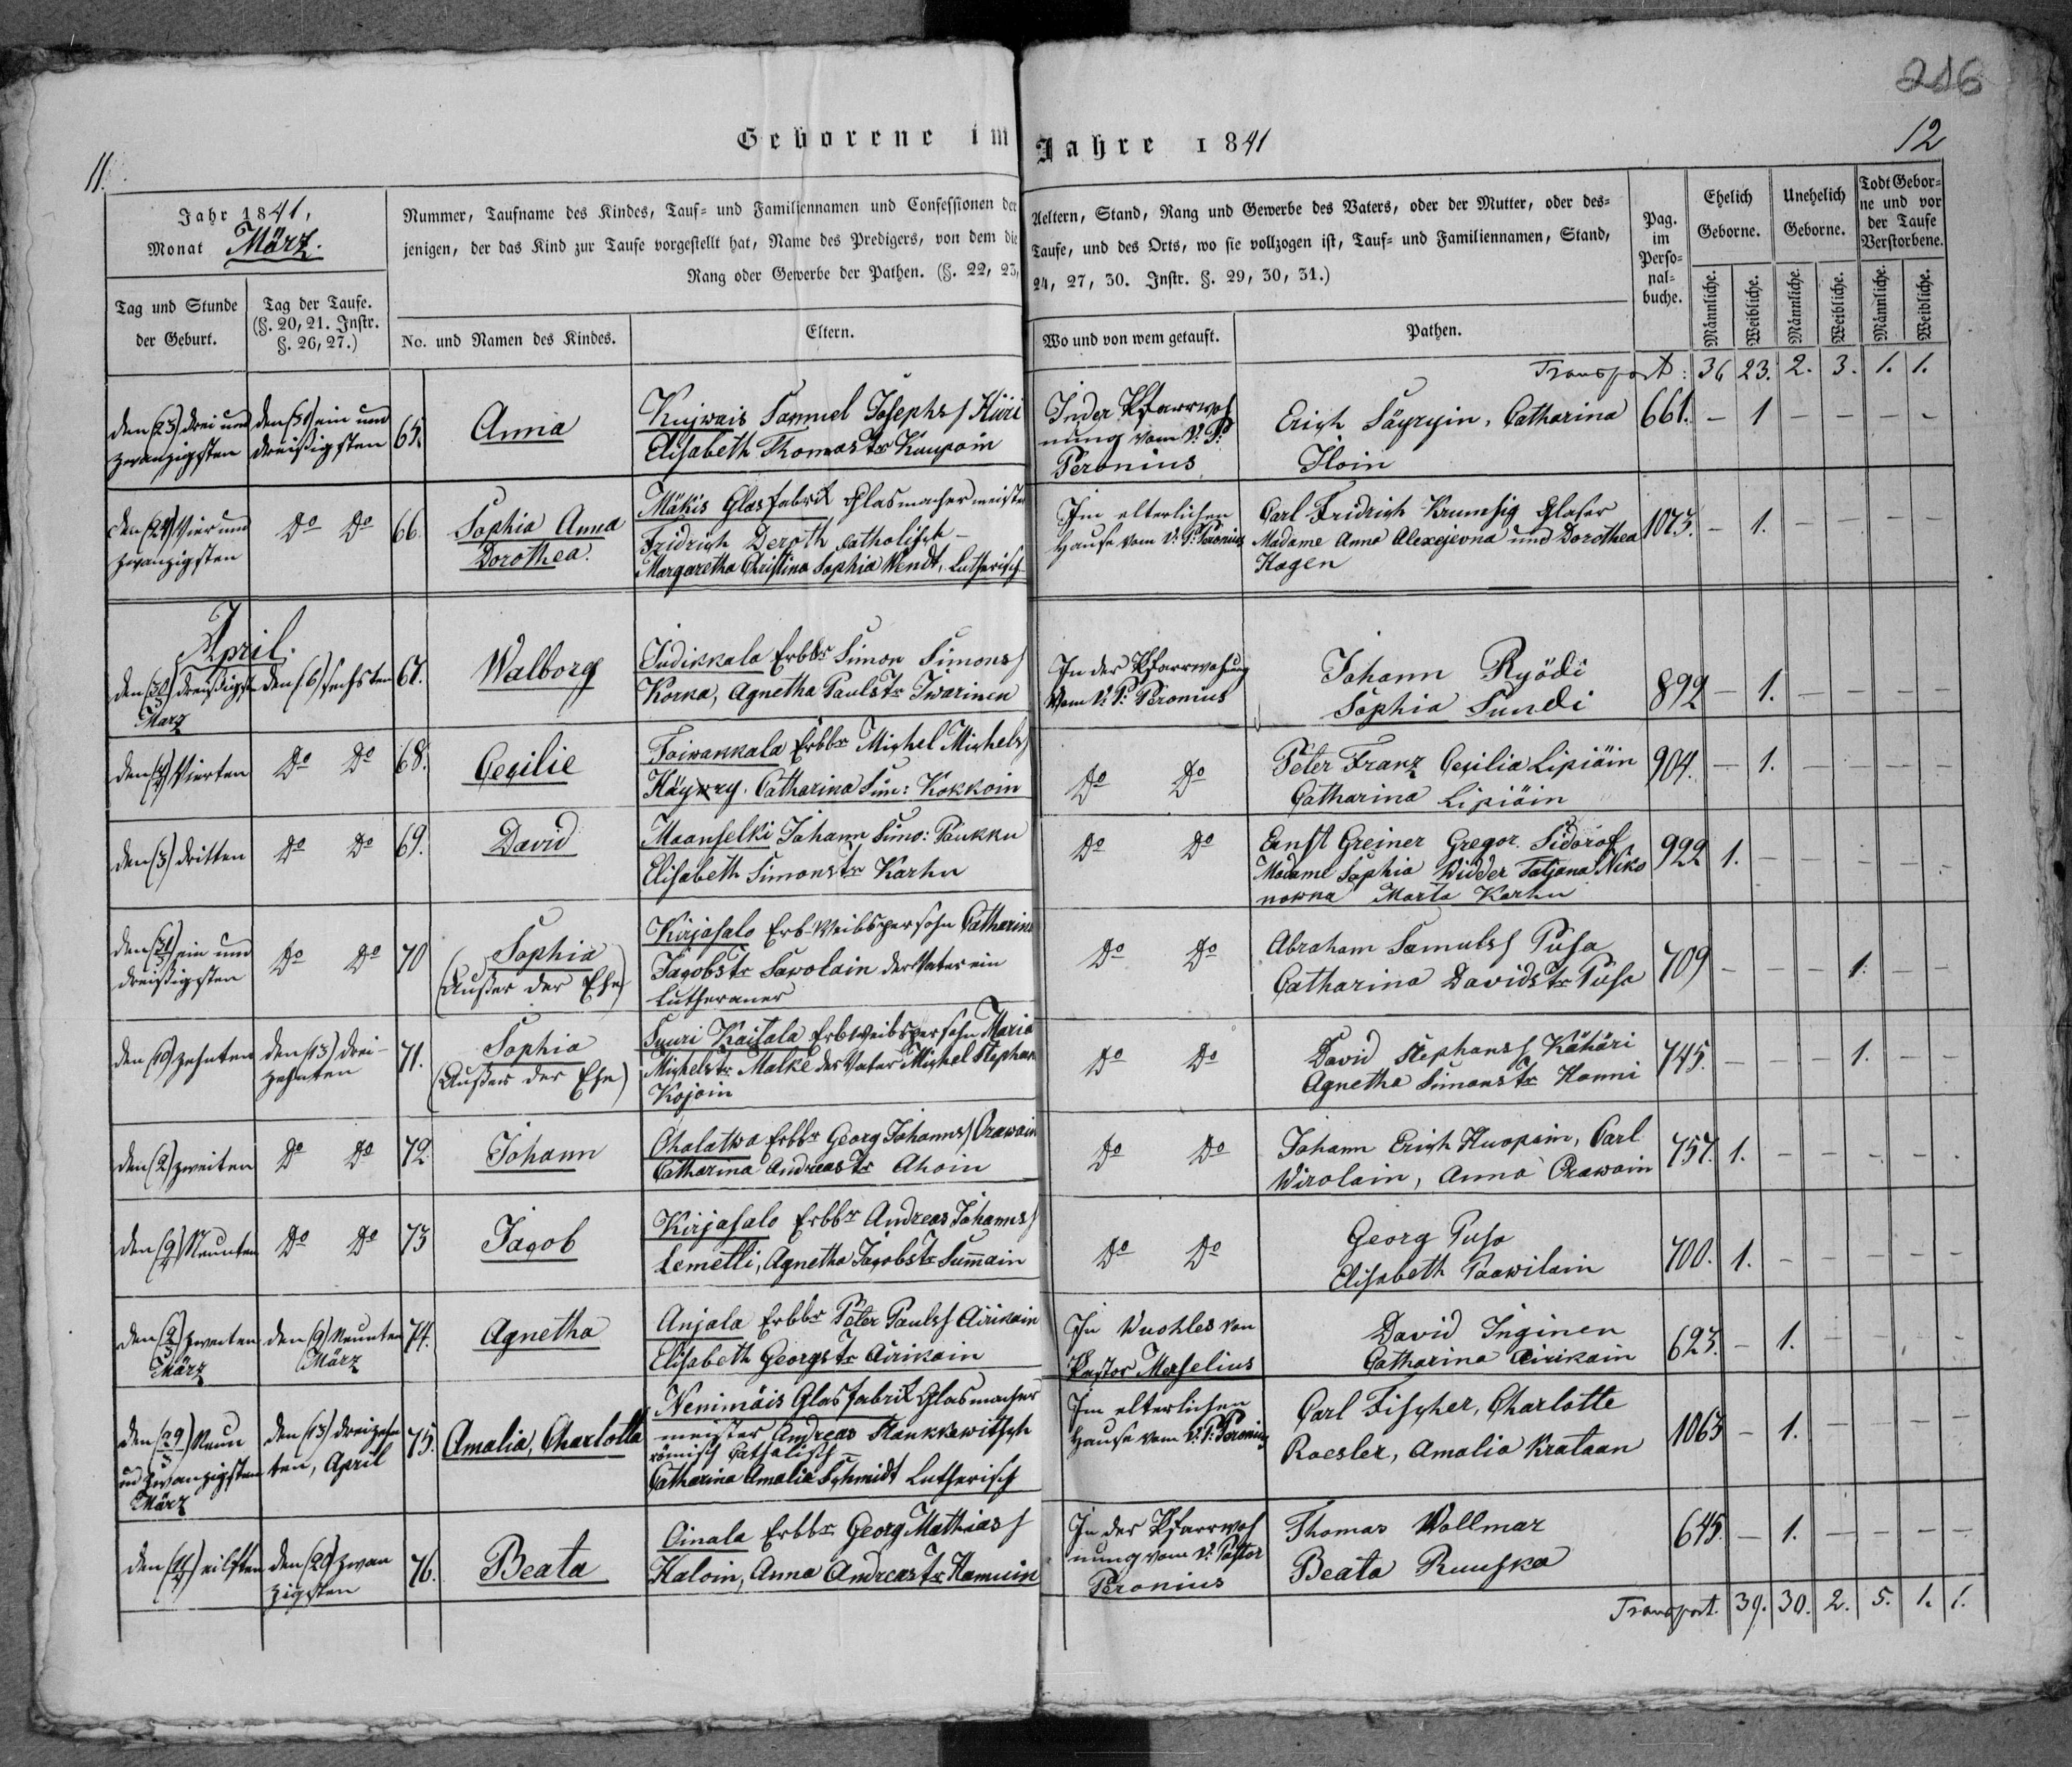 216
11.
12
Geborene im Jahre 1841
Jahr 1841,
Monat März.
Nummer, Taufname des Kindes, Tauf- und Familiennamen und Confessionen der Aeltern, Stand, Rang und Gewerbe des Vaters, oder der Mutter, oder des-
jenigen, der das Kind zur Taufe vorgestellt hat, Name des Predigers, von dem die Taufe, und des Orts, wo sie vollzogen ist, Tauf- und Familiennamen, Stand,
Rang oder Gewerbe der Pathen. (§. 22, 23, 24, 27, 30. Instr. §. 29, 30, 31.)
Pag. im Perso-nal-buche.
Ehelich Geborne.
Unehelich Geborne.
Todt Gebor-ne und vor der Taufe Verstorbene.
Tag und Stunde der Geburt.
Tag der Taufe. (§. 20, 21. Instr. §. 26, 27.)
No. und Namen des Kindes.
Eltern.
Wo und von wem getauft.
Pathen.
Männliche. Weibliche. Männliche. Weibliche. Männliche. Weibliche.
Transport: 36 23. 2. 3. 1. 1.
den (23) drei und zwanzigsten
den (31) ein und dreißigsten
65.
Anna
Kujwais Samuel Josephs Hüri
Elisabeth Thomastr Kaupoin
In der Pfarrwoh
nung vom V. P.
Peronius
Erich Säyryin, Catharina
Iloin
661. – 1 – – – –
den (24) Vier und
zwanzigsten
Do Do
66.
Sophia Anna
Dorothea.
Mäkis Glasfabrik Glasmachermeister
Fridrich Deroth Catholisch –
Margaretha Christina Sophia Wendt, Lutherisch
Im elterlichen
Hause vom V. P. Peronius
Carl Fridrich Krumsig Glaser
Madame Anna Alexejevna und Dorothea
Hagen
1073. – 1. – – – –
April.
den (30/3) dreißigst
März
den (6) sechsten
67.
Walborg
Judikkala Erbbr Simon Simons
Korka, Agnetha Paulstr Iwarinen
In der Pfarrwohung
vom V. P. Peronius
Johann Ryödi
Sophia Sundi
892 – 1. – – – –
den (4) Vierten
Do Do
68.
Cecilie
Toiwakkala Erbbr Michel Michels
Häywry. Catharina Sim: Kokkoin
Do Do
Peter Franz Cecilia Lipiäin
Catharina Lipiäin
904. – 1. – – – –
den (3) dritten
Do Do
69.
David
Maanselki Johann Simo: Paukku
Elisabeth Simonstr Karhu
Do Do
Ernst Greiner Gregor. Sidorof
Madame Sophia Widder Tatjana Niko
nowna Marta Karhu
922 1. – – – – –
den (31/3) ein und
dreißigsten
Do Do
70
Sophia
(Außer der Ehe)
Kirjasalo Erb-Weibsperson Catharina
Jacobstr Sawolain der Vater ein
Lutheraner
Do Do
Abraham Samuels Pusa
Catharina Davidstr Pusa
709 – – – 1. – –
den (10) zehnten
den (13) drei-
zehnten
71.
Sophia
(Außer der Ehe)
Suuri Kaitala Erb Weibsperson Maria
Michelstr Malke der Vater Michel Stephan
Kojoin
Do Do
David Stephans Kähäri
Agnetha Simonstr Honni
745. – – – 1. – –
den (2) zweiten
Do Do
72.
Johann
Ohalatwa Erbbr Georg Johanns Orawain
Catharina Andreastr Ahoin
Do Do
Johann Erich Huopain, Carl
Wirolain, Anna Orawain
757. 1. – – – – –
den (9/4) Neunten
Do Do
73
Jacob
Kirjasalo Erbbr Andreas Johanns
Lemetti, Agnetha Jacobstr Summain
Do Do
Georg Pusa
Elisabeth Paawilain
700. 1. – – – – –
den (2/3) zweiten
März
den (9) Neunten
März
74.
Agnetha
Anjala Erbbr Peter Pauls Airikain
Elisabeth Georgstr Airikain
In Wuohles von
Pastor Meselius
David Inginen
Catharina Airikain
623. – 1. – – – –
den (29/3) Neun
und zwanzigsten
März
den (13) dreizehn
ten, April
75.
Amalia, Charlotta
Nenimäis Glasfabrik Glasmacher
meister Andreas Stankkewitsch
römisch Catholisch –
Catharina Amalia Schmidt Lutherisch
Im elterlichen
Hause vom V. P. Peronius
Carl Fischer, Charlotte
Roesler, Amalia Krataan
1063 – 1. – – – –
den (11/4) eilften
den (20) zwan
zigsten
76.
Beata
Oinala Erbbr Georg Mathias
Haloin, Anna Andreastr Hamuin
In der Pfarrwoh
nung vom V. Pastor
Peronius
Thomas Wollmar
Beata Ruuska
645. – 1. – – – –
Transport. 39. 30. 2. 5. 1. 1.